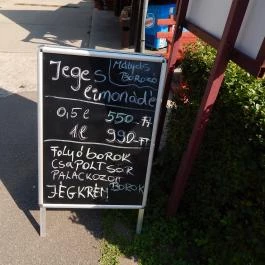 Jeges
Mátyás
Borozó
limonádé
0,5 l 550.-Ft
1 l 990.-Ft
FOLYÓ BOROK
CSAPOLT SÖR
PALACKOZOTT
BOROK
JÉGKRÉM